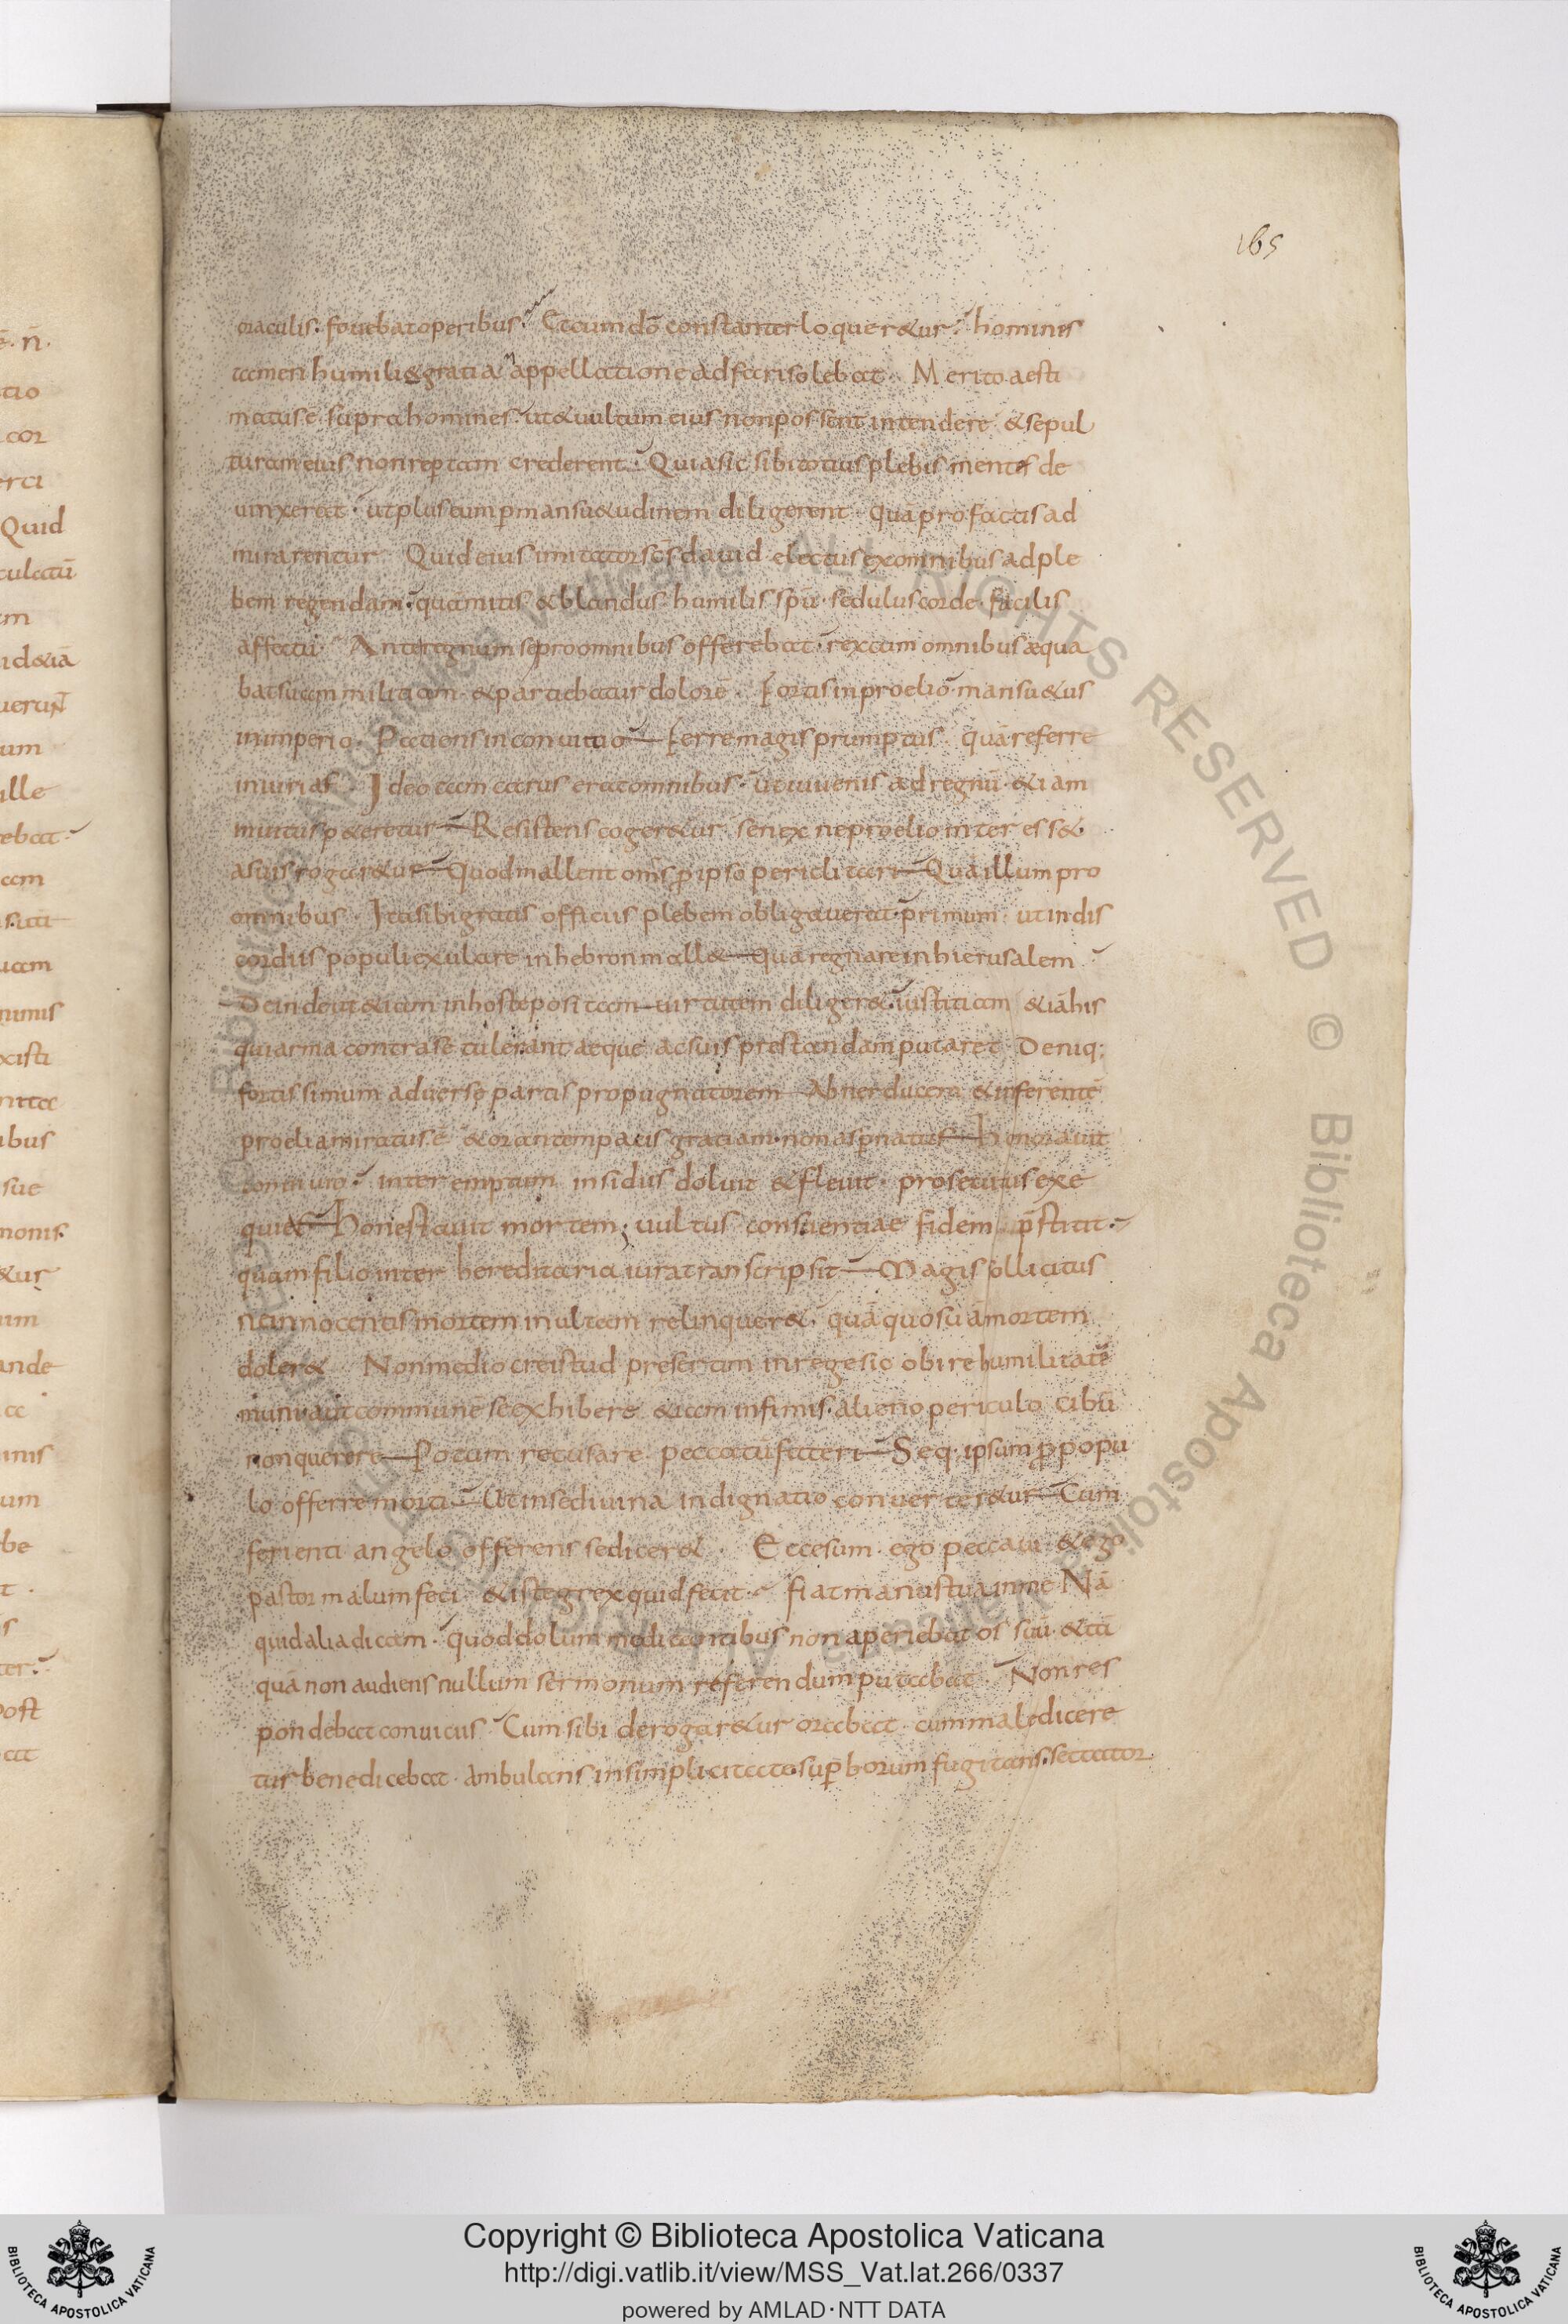 165
oraculis. fouebat operibus. Et cum dō constanter loqueretur. homines
tamen humili & gratiā appellatione adfari solebat. Merito aesti
matus ē supra homines. ut & uultum eius non possent intendere & sepul
turam eius non reptam crederent. Quia sic sibi totius plebis mentes de
uinxerat. ut plus eum p mansu&udinem diligerent. quā pro factis ad
mirarentur Quid eius imitator scs dauid electus ex omnibus ad ple
bem regendam. quā mitis & blandus. humilis spū. sedulus corde. facilis
affectu. Ante regnum se pro omnibus offerebat. rex cum omnibus æqua
bat suam militiam. & partiebatur dolorē. Fortis in proelio. mansu&us
in imperio. Patiens in conuitio. Ferre magis prumptus. quā referre
iniurias. Ideo tam carus erat omnibus. ut iuuenis ad regnū. &iam
inuitus p&eretur. Resistens coger&ur senex ne proelio interess&
a suis rogar&ur. Quod mallent oms p ipso periclitari. Quā illum pro
omnibus. Ita sibi gratis officiis plebem obligauerat. primum. ut in dis
cordiis populi exulare in hebron mall&. quā regnare in hierusalem.
Deinde ut &iam in hoste positam uirtutem diliger&. iustitiam &iā his
qui arma contra se tulerant aeque. ac suis prestandam putaret. Deniq;
fortissimum aduerse partis propugnatorem Abner ducem & inferentē
proelia miratus ē. & orantem pacis gratiam. non aspnatus. Honorauit
conuiuio. interemptum insidiis doluit & fleuit. prosecutus exe
quias. Honestauit mortem; uultus conscientiae fidem pstitit.
quam filio inter hereditaria iura transcripsit. Magis sollicitus
ne innocentis mortem inultam relinquer&. quā quo suā mortem
doler&. Non mediocre istud presertim in rege sic obire humilitatē
munia ut communē se exhibere &iam infimis. alieno periculo cibū
non querere. Potum recusare. peccatū fateri. Seq. ipsum p popu
lo offerre morti. Ut in se diuina indignatio conuerter&ur. Cum
ferienti angelo offerens se dicer&. Ecce sum. ego peccaui. & ego
pastor malum feci. & iste grex quid fecit. fiat manus tua in me Nā
quid alia dicam. quod dolum meditantibus non aperiebat os suū. & tā
quā non audiens nullum sermonum referendum putabat. Non res
pondebat conuiciis. Cum sibi derogar&ur orabat. cum maledicere
tur benedicebat. Ambulans in simplicitate. supborum fugitans. sectator
ALL RIGHTS RESERVED © Biblioteca Apostolica Vaticana
Copyright © Biblioteca Apostolica Vaticana
http://digi.vatlib.it/view/MSS_Vat.lat.266/0337
powered by AMLAD·NTT DATA
BIBLIOTECA APOSTOLICA VATICANA
BIBLIOTECA APOSTOLICA VATICANA